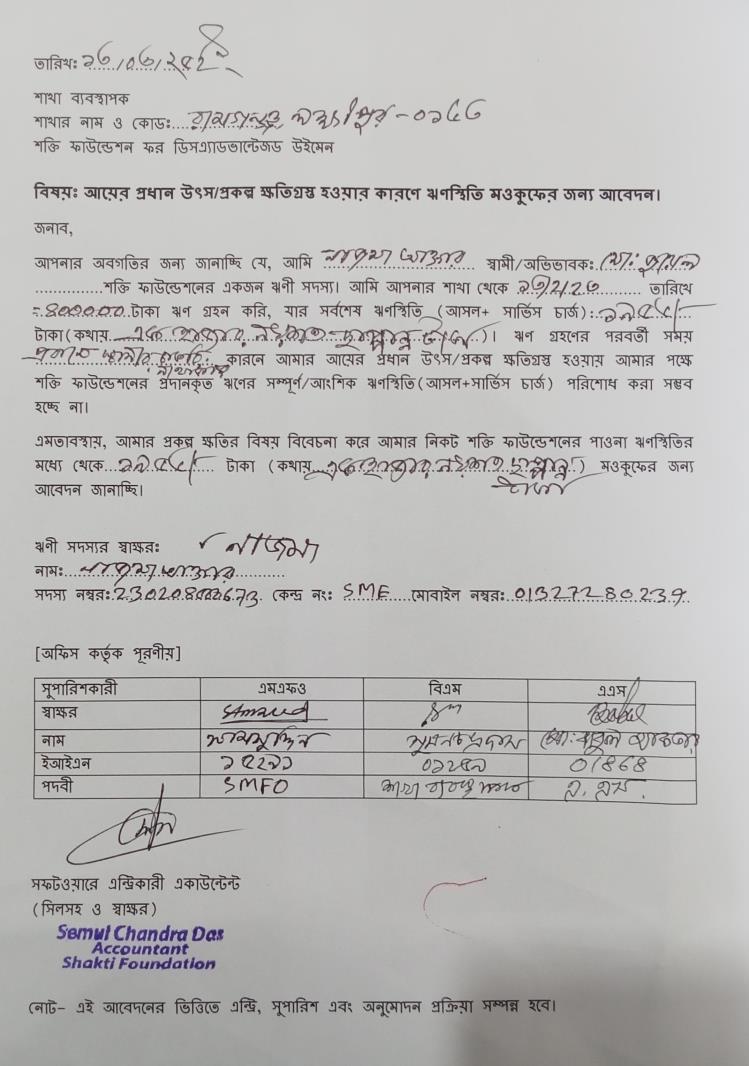 তারিখ:
শাখা ব্যবস্থাপক
শাখার নাম ও কোড: রামগঞ্জ, লক্ষ্মীপুর-০১৫৩
শক্তি ফাউন্ডেশন ফর ডিসএ্যাডভান্টেজড উইমেন
বিষয়: আয়ের প্রধান উৎস/প্রকল্প ক্ষতিগ্রস্থ হওয়ার কারণে ঋণস্থিতি মওকুফের জন্য আবেদন।
জনাব,
আপনার অবগতির জন্য জানাচ্ছি যে, আমি নাজমা আক্তার স্বামী/অভিভাবক: মো:
শক্তি ফাউন্ডেশনের একজন ঋণী সদস্য। আমি আপনার শাখা থেকে তারিখে
=৪০০০০০ টাকা ঋণ গ্রহন করি, যার সর্বশেষ ঋণস্থিতি (আসল+ সার্ভিস চার্জ): ১৯৫৫/-
টাকা(কথায় এক হাজার নয়শত পঞ্চান্ন টাকা)। ঋণ গ্রহণের পরবর্তী সময়
কারনে আমার আয়ের প্রধান উৎস/প্রকল্প ক্ষতিগ্রস্থ হওয়ায় আমার পক্ষে
শক্তি ফাউন্ডেশনের প্রদানকৃত ঋণের সম্পূর্ণ/আংশিক ঋণস্থিতি(আসল+সার্ভিস চার্জ) পরিশোধ করা সম্ভব
হচ্ছে না।
এমতাবস্থায়, আমার প্রকল্প ক্ষতির বিষয় বিবেচনা করে আমার নিকট শক্তি ফাউন্ডেশনের পাওনা ঋণস্থিতির
মধ্যে থেকে ১৯৫৫/- টাকা (কথায় এক হাজার নয়শত পঞ্চান্ন টাকা) মওকুফের জন্য
আবেদন জানাচ্ছি।
ঋণী সদস্যের স্বাক্ষর: নাজমা
নাম: নাজমা আক্তার
সদস্য নম্বর: কেন্দ্র নং: SME মোবাইল নম্বর:
[অফিস কর্তৃক পূরনীয়]
সুপারিশকারী এমএফও বিএম এএস
স্বাক্ষর
নাম
ইআইএন 01868
পদবী SMFO শাখা ব্যবস্থাপক এ. এস.
সফটওয়্যারে এন্ট্রিকারী একাউন্টেন্ট
(সিলসহ ও স্বাক্ষর)
Semul Chandra Das
Accountant
Shakti Foundation
নোট- এই আবেদনের ভিত্তিতে এন্ট্রি, সুপারিশ এবং অনুমোদন প্রক্রিয়া সম্পন্ন হবে।